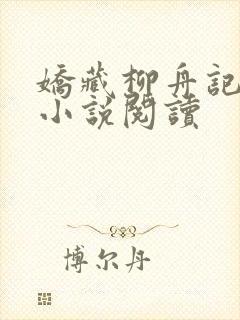 嬌藏柳舟記
小說閱讀
博尔丹